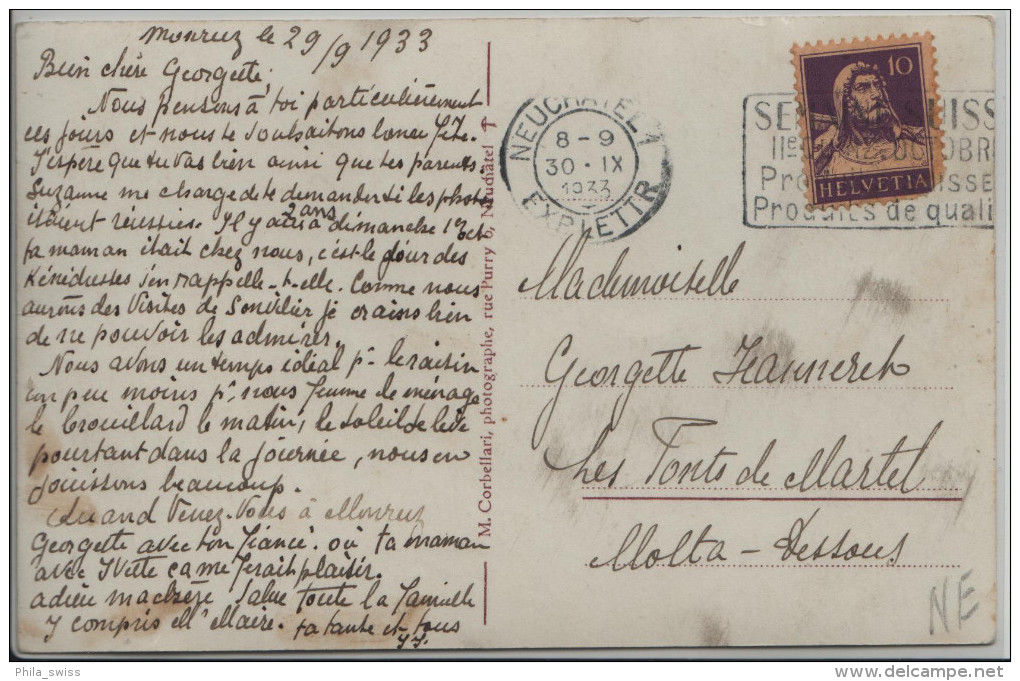 Monruz le 29/9 1933
Bien chère Georgette,
Nous pensons à toi particulièrement
ces jours et nous te souhaitons bonne fête.
J'espère que tu vas bien ainsi que tes parents.
Suzanne me charge de te demander si les photos
étaient réussies. Il y aura 2 ans dimanche 1er oct
ta maman était chez nous, c'est le jour des
s'en rappelle-t-elle. Comme nous
aurons des visites de Sonvilier je crains bien
de ne pouvoir les admirer.
Nous avons un temps idéal pr le raisin
un peu moins pr nous femme de ménage
le brouillard le matin, le soleil se lève
pourtant dans la journée, nous en
jouissons beaucoup.
Quand venez-vous à Monruz
Georgette avec ton fiancé. où ta maman
avec Yvette ça me ferait plaisir.
adieu ma chère Salue toute la famille
y compris Mr Maire. ta tante et tous
M. Corbellari, photographe, rue Purry 6, Neuchâtel
NEUCHATEL 1
8-9
30·IX
1933
EXP. LETTR.
10
HELVETIA
IIe
Produits de quali
Mademoiselle
Georgette Jeanneret
Les Ponts de Martel
Molta-Dessous
NE
Phila_swiss